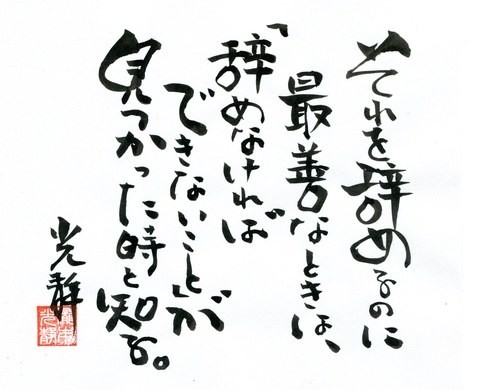 それを辞めるのに
最善なときは、
「辞めなければ
できないこと」が
見つかった時と知る。
光静